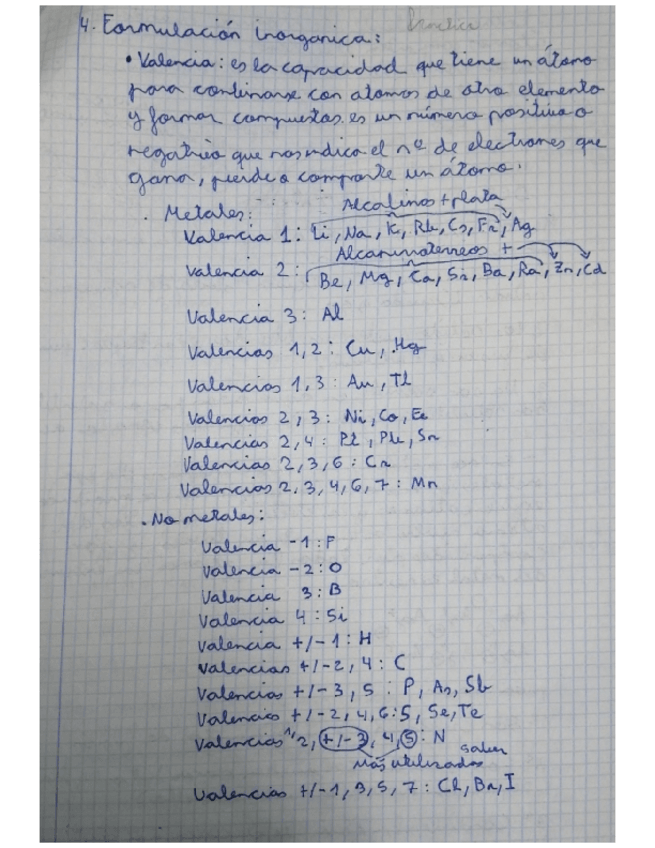 4. Formulación inorganica:
• Valencia: es la capacidad que tiene un átomo
para combinarse con atomos de otro elemento
y formar compuestos. es un número positivo o
negativo que nos indica el nº de electrones que
gana, pierde o comparte un átomo.
· Metales:
Alcalinos + plata
Valencia 1: Li, Na, K, Rb, Cs, Fr, Ag
Alcarinoterreos +
Valencia 2: Be, Mg, Ca, Sr, Ba, Ra, Zn, Cd
Valencia 3: Al
Valencias 1,2: Cu, Hg
Valencias 1,3: Au, Tl
Valencias 2,3: Ni, Co, Fe
Valencias 2,4: Pt, Pb, Sn
Valencias 2,3,6: Cr
Valencias 2,3,4,6,7: Mn
· No metales:
Valencia -1: F
Valencia -2: O
Valencia 3: B
Valencia 4: Si
Valencia +/-1: H
Valencias +/-2, 4: C
Valencias +/-3, 5: P, As, Sb
Valencias +/-2, 4, 6: S, Se, Te
Valencias 1, 2, +/-3, 4, 5: N
saber
Más utilizados
Valencias +/-1, 3, 5, 7: Cl, Br, I